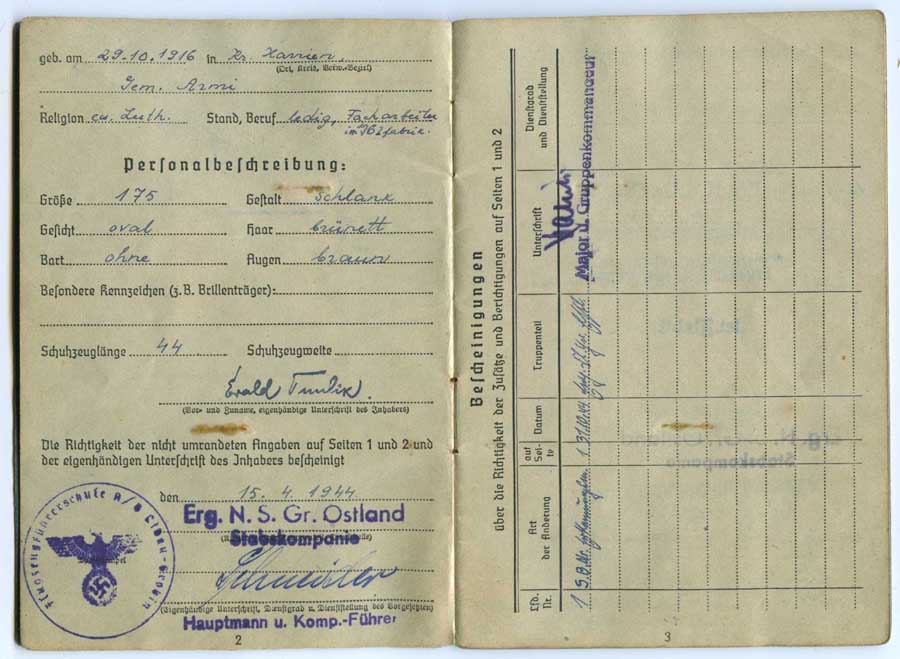 geb. am 29.10.1916 in Kr. Harrien,
(Ort, Kreis, Verw.-Bezirk)
Gem. Arni
Religion ev. Luth. Stand, Beruf ledig, Facharbeiter
Personalbeschreibung:
Größe 175 Gestalt schlank
Gesicht oval Haar brünett
Bart ohne Augen braun
Besondere Kennzeichen (z.B. Brillenträger):
Schuhzeuglänge 44 Schuhzeugweite
Evald Tuulik
(Vor- und Zuname, eigenhändige Unterschrift des Inhabers)
Die Richtigkeit der nicht umrandeten Angaben auf Seiten 1 und 2 und
der eigenhändigen Unterschrift des Inhabers bescheinigt
den 15.4.1944
Erg. N. S. Gr. Ostland
Stabskompanie
(Eigenhändige Unterschrift, Dienstgrad u. Dienststellung des Vorgesetzten)
Hauptmann u. Komp.-Führer
Flugzeugführerschule A/B Libau-Grobin
2
Bescheinigungen
über die Richtigkeit der Zusätze und Berichtigungen auf Seiten 1 und 2
Lfd. Nr.
Art der Änderung
auf Seite
Datum
Truppenteil
Unterschrift
Dienstgrad und Dienststellung
1
1
Major u. Gruppenkommandeur
3